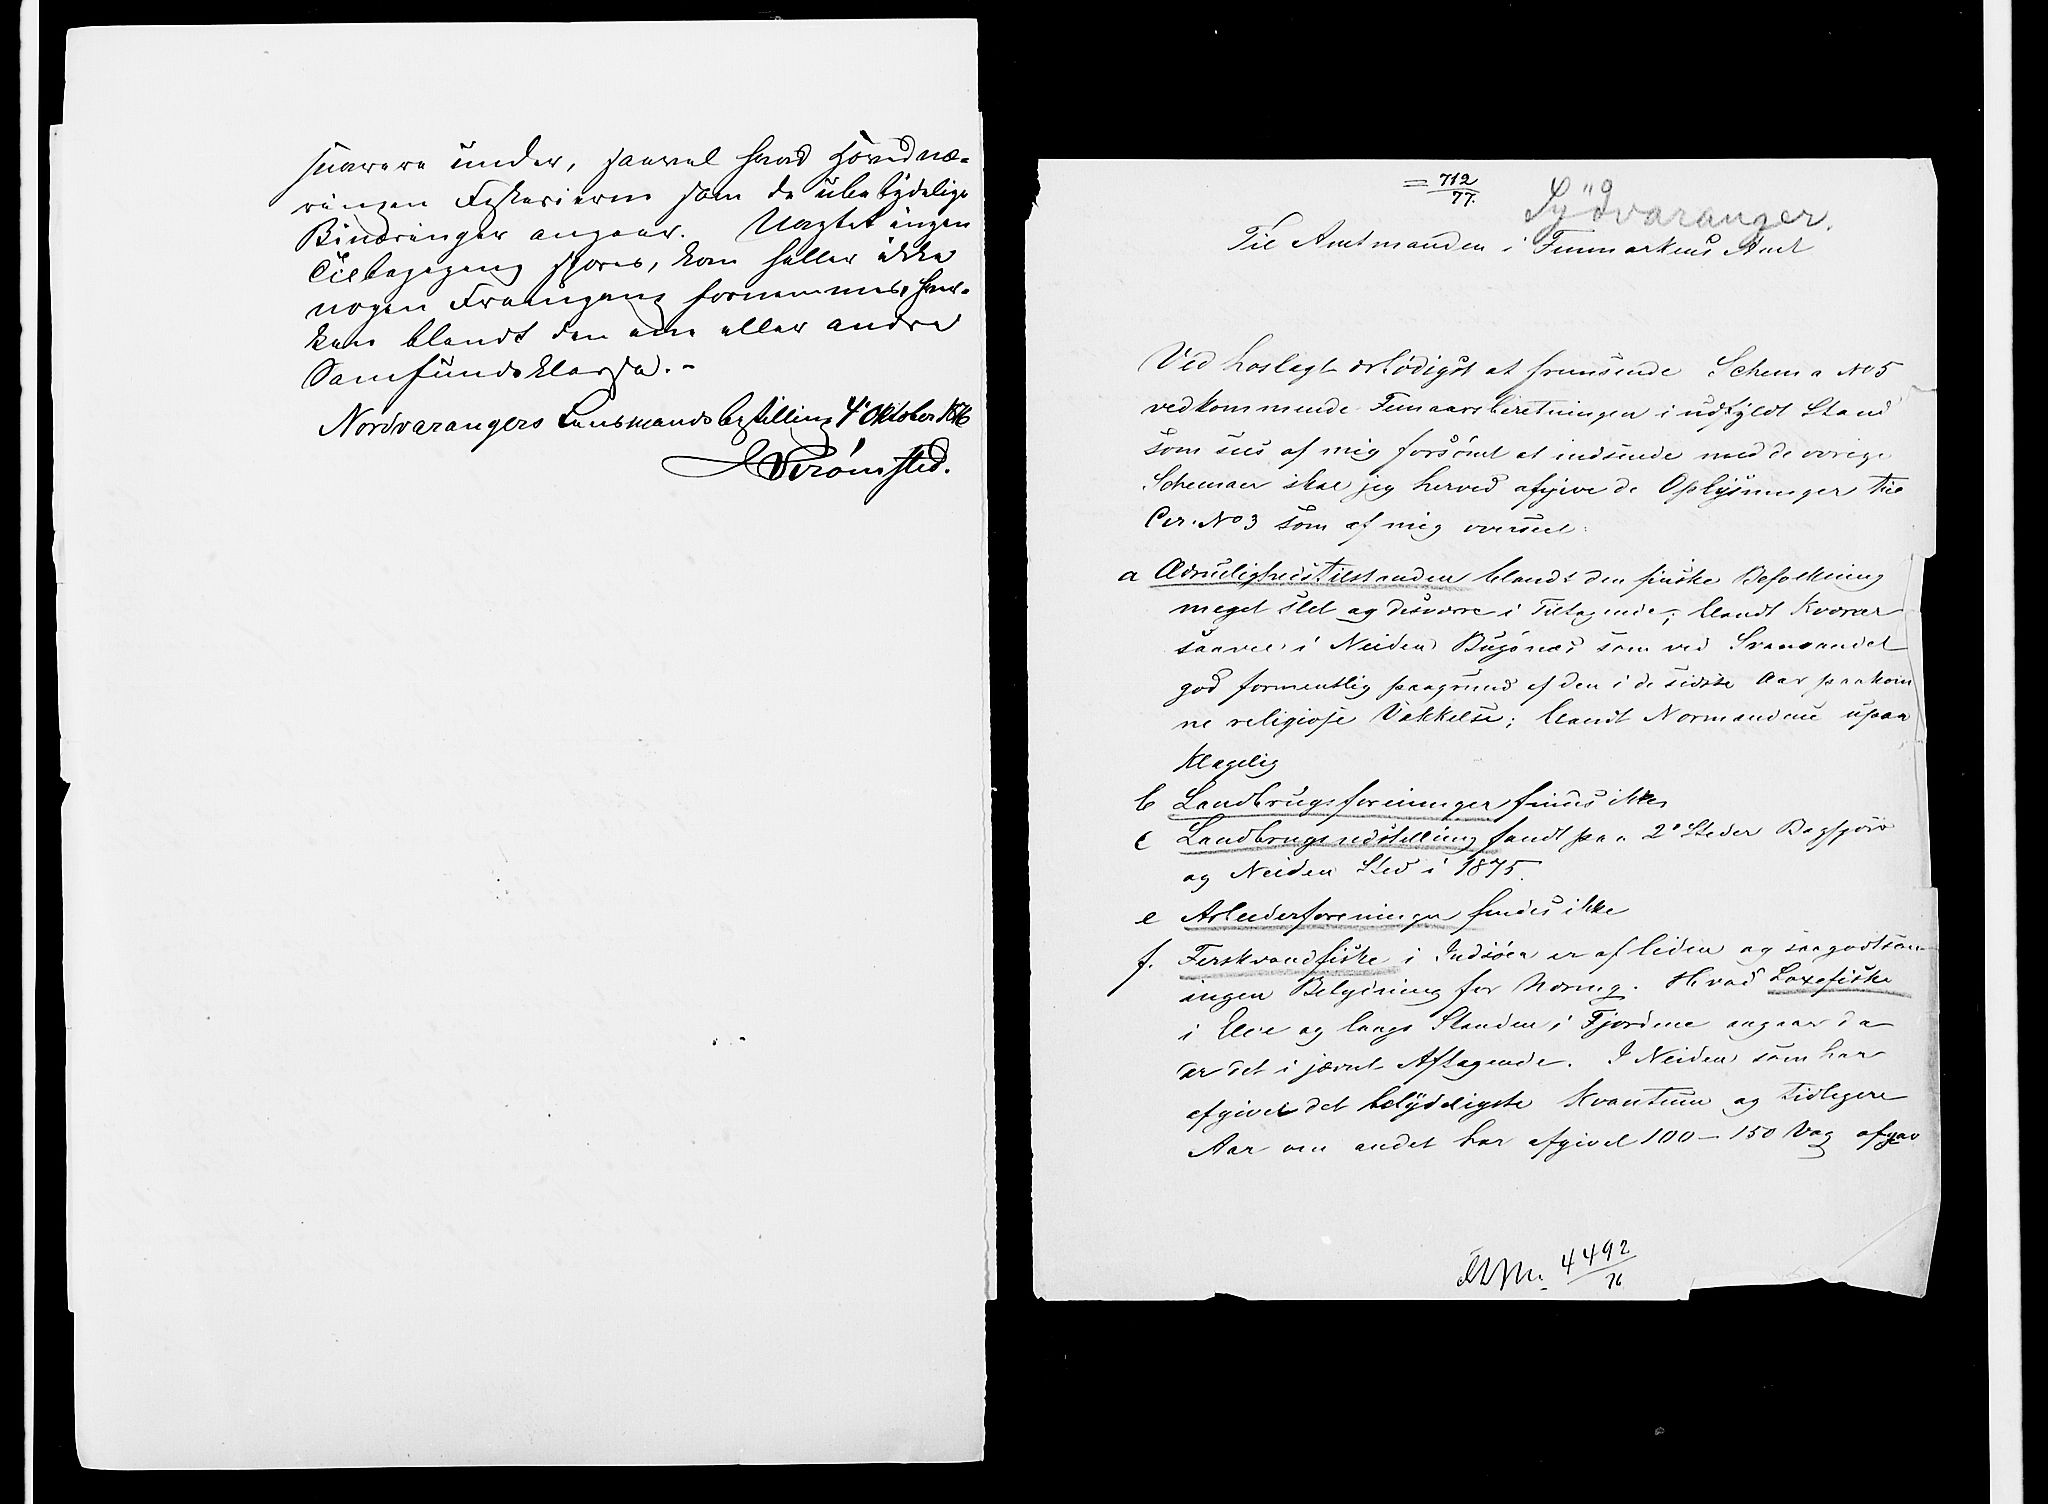 snarere under, saavel hvad Hovednæ-
ringen Fiskerierne som de übetydelige
Binæringer angaar. Uagtet ingen
Tilbagegang spores, kan heller ikke
nogen Fremgang fornemmes, hver-
ken blandt den ene eller andre
Samfundsklasse. -
Nordvarangers Lensmandsbestilling 4' Oktober 1876
Strømsted.
= 712/77.
Sydvaranger.
Til Amtmanden i Finmarkens Amt
Ved hoslagt ærbødigst at fremsende Schema No 5
vedkommende Femaarsberetningen i udfyldt Stand
som sees af mig forsømt at indsende med de øvrige
Schemaer skal jeg herved afgive de Oplysninger til
Cir. No 3 som af mig overseet:
a Ædruelighedstilstanden blandt den finske Befolkning
meget slet og desværre i Tiltagende; blandt Kvæner
saavel i Neiden Bugönæs som ved Svanvandet
god formentlig paagrund af den i de sidste Aar paakom
ne religiøse Vækkelse; blandt Normændene upaa
klagelig
b Landbrugsforeninger findes ikke
c Landbrugsudstilling fandt paa 2de Steder Bugfjord
og Neiden Sted i 1875.
e Arbeiderforeninger findes ikke
f. Ferskvandfiske i Indsöen er af liden og saagodtsom
ingen Betydning for Næring. Hvad Laxefiske
i Elve og langs Standen i Fjordene angaar da
er det i jævnt Aftagende. I Neiden som har
afgivet det betydeligste Kvantum og tidligere
Aar om andet har afgivet 100 - 150 Vog afgav
4492/76